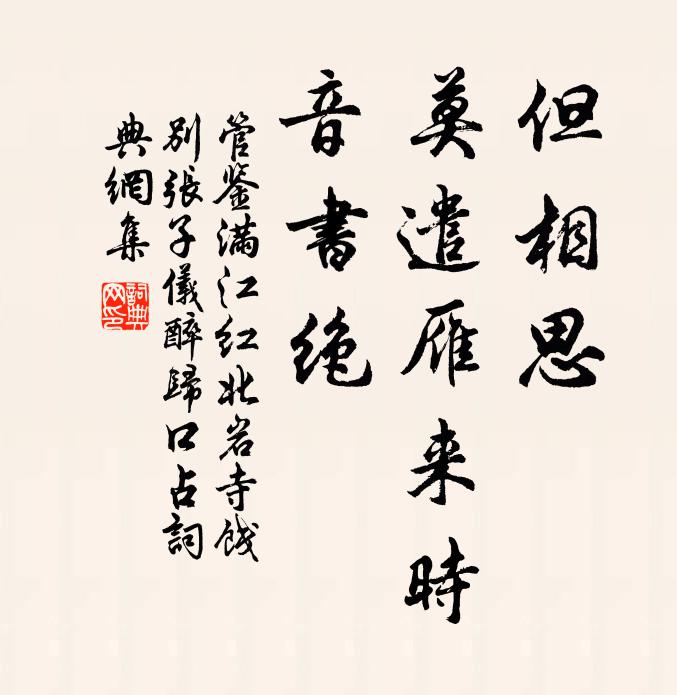 但相思
莫遣雁来時
音書絶
管鉴滿江红北岩寺餞
别張子儀醉歸口占詞
典網集
詞典网印